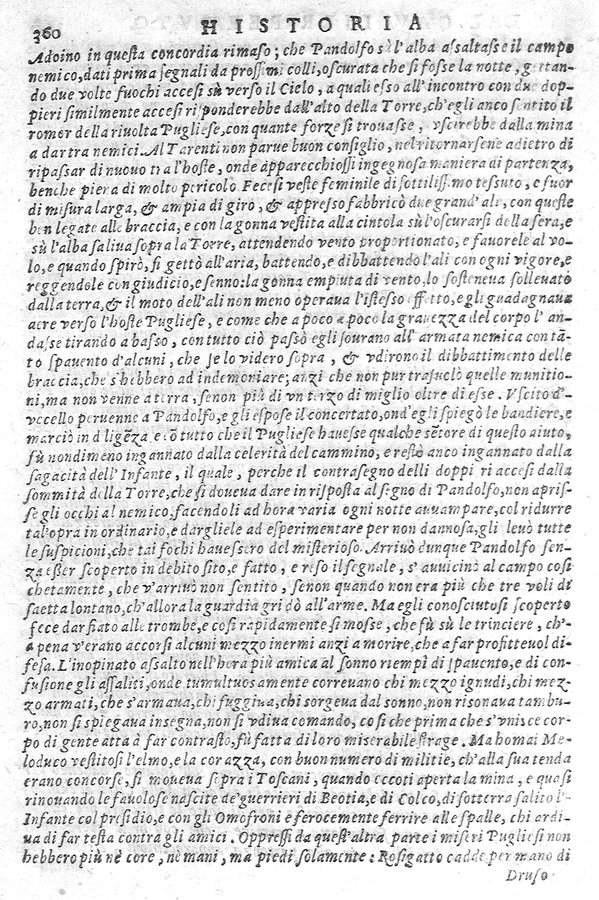 360 HISTORIA
Adoino in questa concordia rimaso; che Pandolfo sù l'alba assaltasse il campo
nemico, dati prima segnali da prossimi colli, oscurata che si fosse la notte, gettan-
do due volte fuochi accesi sù verso il Cielo, a quali esso all'incontro con due dop-
pieri similmente accesi risponderebbe dall'alto della Torre, ch'egli anco sentito il
romor della riuolta Pugliese, con quante forze si trouasse, vscirebbe dalla mina
a dar tra nemici. Al Tarenti non parue buon consiglio, nel ritornarsene adietro di
ripassar di nuouo tra l'hoste, onde apparecchiossi ingegnosa maniera di partenza,
benche piera di molto pericolo Fecesi veste feminile di sottiliss.mo tessuto, e fuor
di misura larga, & ampia di giro, & appresso fabbricò due grand'ali, con queste
ben legate alle braccia, e con la gonna vestita alla cintola sù l'oscurarsi della sera, e
sù l'alba saliua sopra la Torre, attendendo vento proportionato, e fauorele al vo-
lo, e quando spirò, si gettò all'aria, battendo, e dibbattendo l'ali con ogni vigore, e
reggendole con giudicio, e senno: la gonna empiuta di vento, lo sosteneua solleuato
dalla terra, & il moto dell'ali non meno operaua l'istesso effetto, e gli guadagnaua
aere verso l'hoste Pugliese, e come che a poco a poco la grauezza del corpo l'an-
dasse tirando a basso, con tutto ciò passò egli sourano all'armata nemica con tã-
to spauento d'alcuni, che se lo videro sopra, & vdirono il dibbattimento delle
braccia, che s'hebbero ad indemoniare; anzi che non pur trasuolò quelle munitio-
ni, ma non venne a terra, senon più di vn terzo di miglio oltre di esse. Vscito d'-
vccello peruenne a Pandolfo, e gli espose il concertato, ond'egli spiegò le bandiere, e
marciò in diligẽza, e cõ tutto che il Pugliese hauesse qualche sẽtore di questo aiuto,
fù nondimeno ingannato dalla celerità del cammino, e restò anco ingannato dalla
sagacità dell'Infante, il quale, perche il contrasegno delli doppieri accesi dalla
sommità della Torre, che si doueua dare in risposta al segno di Pandolfo, non apris-
se gli occhi al nemico, facendoli ad hora varia ogni notte auuampare, col ridurre
tal'opra in ordinario, e dargliele ad esperimentare per non dannosa, gli leuò tutte
le suspicioni, che tai fochi hauessero del misterioso. Arriuò dunque Pandolfo sen-
za esser scoperto in debito sito, e fatto, e reso il segnale, s'auuicinò al campo così
chetamente, che v'arriuò non sentito, senon quando non era più che tre voli di
saetta lontano, ch'allora la guardia gridò all'arme. Ma egli conosciutosi scoperto
fece dar fiato alle trombe, e così rapidamente si mosse, che fù sù le trinciere, ch'a
pena v'erano accorsi alcuni mezzo inermi anzi a morire, che a far profitteuol di-
fesa. L'inopinato assalto nell'hora più amica al sonno riempì di spauento, e di con-
fusione gli assaliti, onde tumultuosamente correuano chi mezzo ignudi, chi mez-
zo armati, che s'armaua, chi fuggiua, chi sorgeua dal sonno, non risonaua tambu-
ro, non si spiegaua insegna, non si vdiua comando, cosi che prima che s'vnisce cor-
po di gente atta à far contrasto, fù fatta di loro miserabile strage. Ma homai Me-
loduco vestitosi l'elmo, e la corazza, con buon numero di militie, ch'alla sua tenda
erano concorse, si moueua sopra i Toscani, quando eccoti aperta la mina, e quasi
rinouando le fauolose nascite de'guerrieri di Beotia, e di Colco, di sotterra salito l'-
Infante col presidio, e con gli Omofroni e ferocemente ferire alle spalle, chi ardi-
ua di far testa contra gli amici. Oppressi da quest'altra parte i miseri Pugliesi non
hebbero più nè core, nè mani, ma piedi solamente: Rosigatto cadde per mano di
Druso